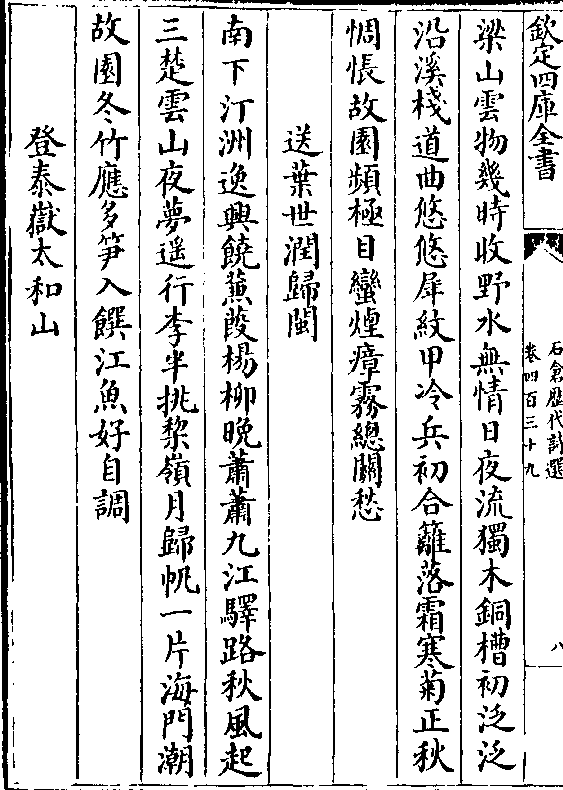 欽定四庫全書
石倉歷代詩選
卷四百三十九
八
梁山雲物幾時收野水無情日夜流獨木銅槽初泛泛
沿溪棧道曲悠悠犀紋甲冷兵初合籬落霜寒菊正秋
惆悵故園頻極目蠻煙瘴霧總關愁
送葉世潤歸閩
南下汀洲逸興饒蒹葭楊柳晚蕭蕭九江驛路秋風起
三楚雲山夜夢遥行李半挑黎嶺月歸帆一片海門潮
故園冬竹應多笋入饌江魚好自調
登泰嶽太和山